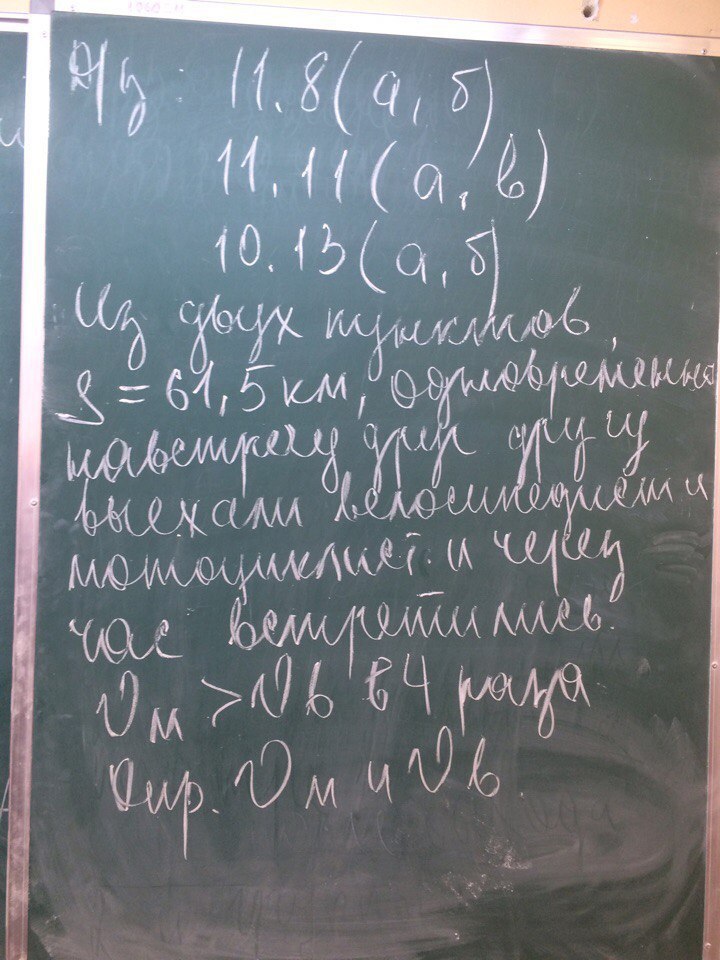 Д/з: 11.8(а, б)
11.11(а, в)
10.13(а, б)
Из двух пунктов,
S = 61,5 км, одновременно
навстречу друг другу
выехали велосипедист и
мотоциклист и через
час встретились.
Vм > Vв в 4 раза
Опр. Vм и Vв